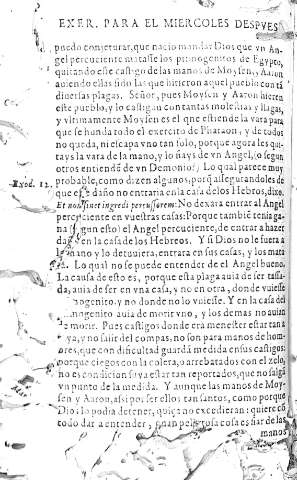 EXER. PARA EL MIERCOLES DESPVES
puedo conjeturar, que nacio mandar Dios que vn An-
gel percuciente matasse los primogenitos de Egypto,
quitando este castigo de las manos de Moysen, y Aaron
auiendo ellas sido las que hizieron aquel pueblo con tã
diuersas plagas. Señor, pues Moysen y Aaron hieren
este pueblo, y lo castigan con tantas molestias y llagas,
y vltimamente Moysen es el que estiende la vara para
que se hunda todo el exercito de Pharaon, y de todos
no queda, ni escapa vno tan solo, porque agora les qui-
tays la vara de la mano, y lo fiays de vn Angel, (o segun
otros entiendẽ de vn Demonio?) Lo qual parece muy
probable, como dizen algunos, porq̃ assegurandoles de
Exod. 12. que este daño no entraria en la casa de los Hebros, dixo.
Et non sinet ingredi percussorem: No dexara entrar al Angel
percuciente en vuestras casas: Porque tambiẽ tenia ga-
na (segun esto) el Angel percuciente, de entrar a hazer
daño en la casa de los Hebreos. Y si Dios no le fuera a
la mano y lo detuuiera, entrara en sus casas, y los mata
ra. Lo qual no se puede entender de el Angel bueno.
La causa de esto es, porque esta plaga auia de ser tassa-
da, auia de ser en vna casa, y no en otra, donde vuiesse
primogenito, y no donde no lo vuiesse. Y en la casa del
primogenito auia de morir vno, y los demas no auian
de morir. Pues castigos donde era menester estar tan a
raya, y no salir del compas, no son para manos de hom-
bres, que con dificultad guardã medida en sus castigos:
porque ciegos con la colera, o arrebatados con el zelo,
no es condicion suya estar tan reportados, que no salgã
vn punto de la medida. Y aunque las manos de Moy-
sen y Aaron, assi por ser ellos tan santos, como porque
Dios lo podia detener, quiça no excedieran: quiere cõ
todo dar a entender, quan peligrosa cosa es fiar de las
manos